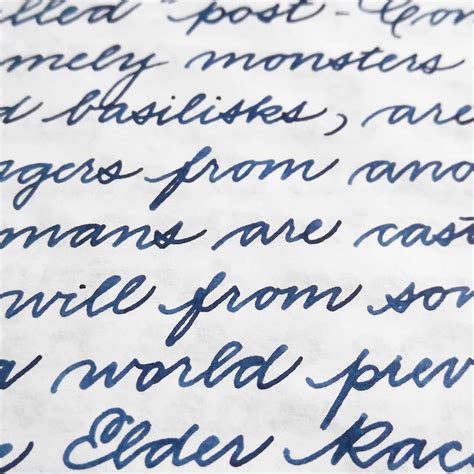 lled "post-Con
mely monsters
d basilisks, are
agers from ano
mans are cast
will from som
a world prev
e Elder Rac